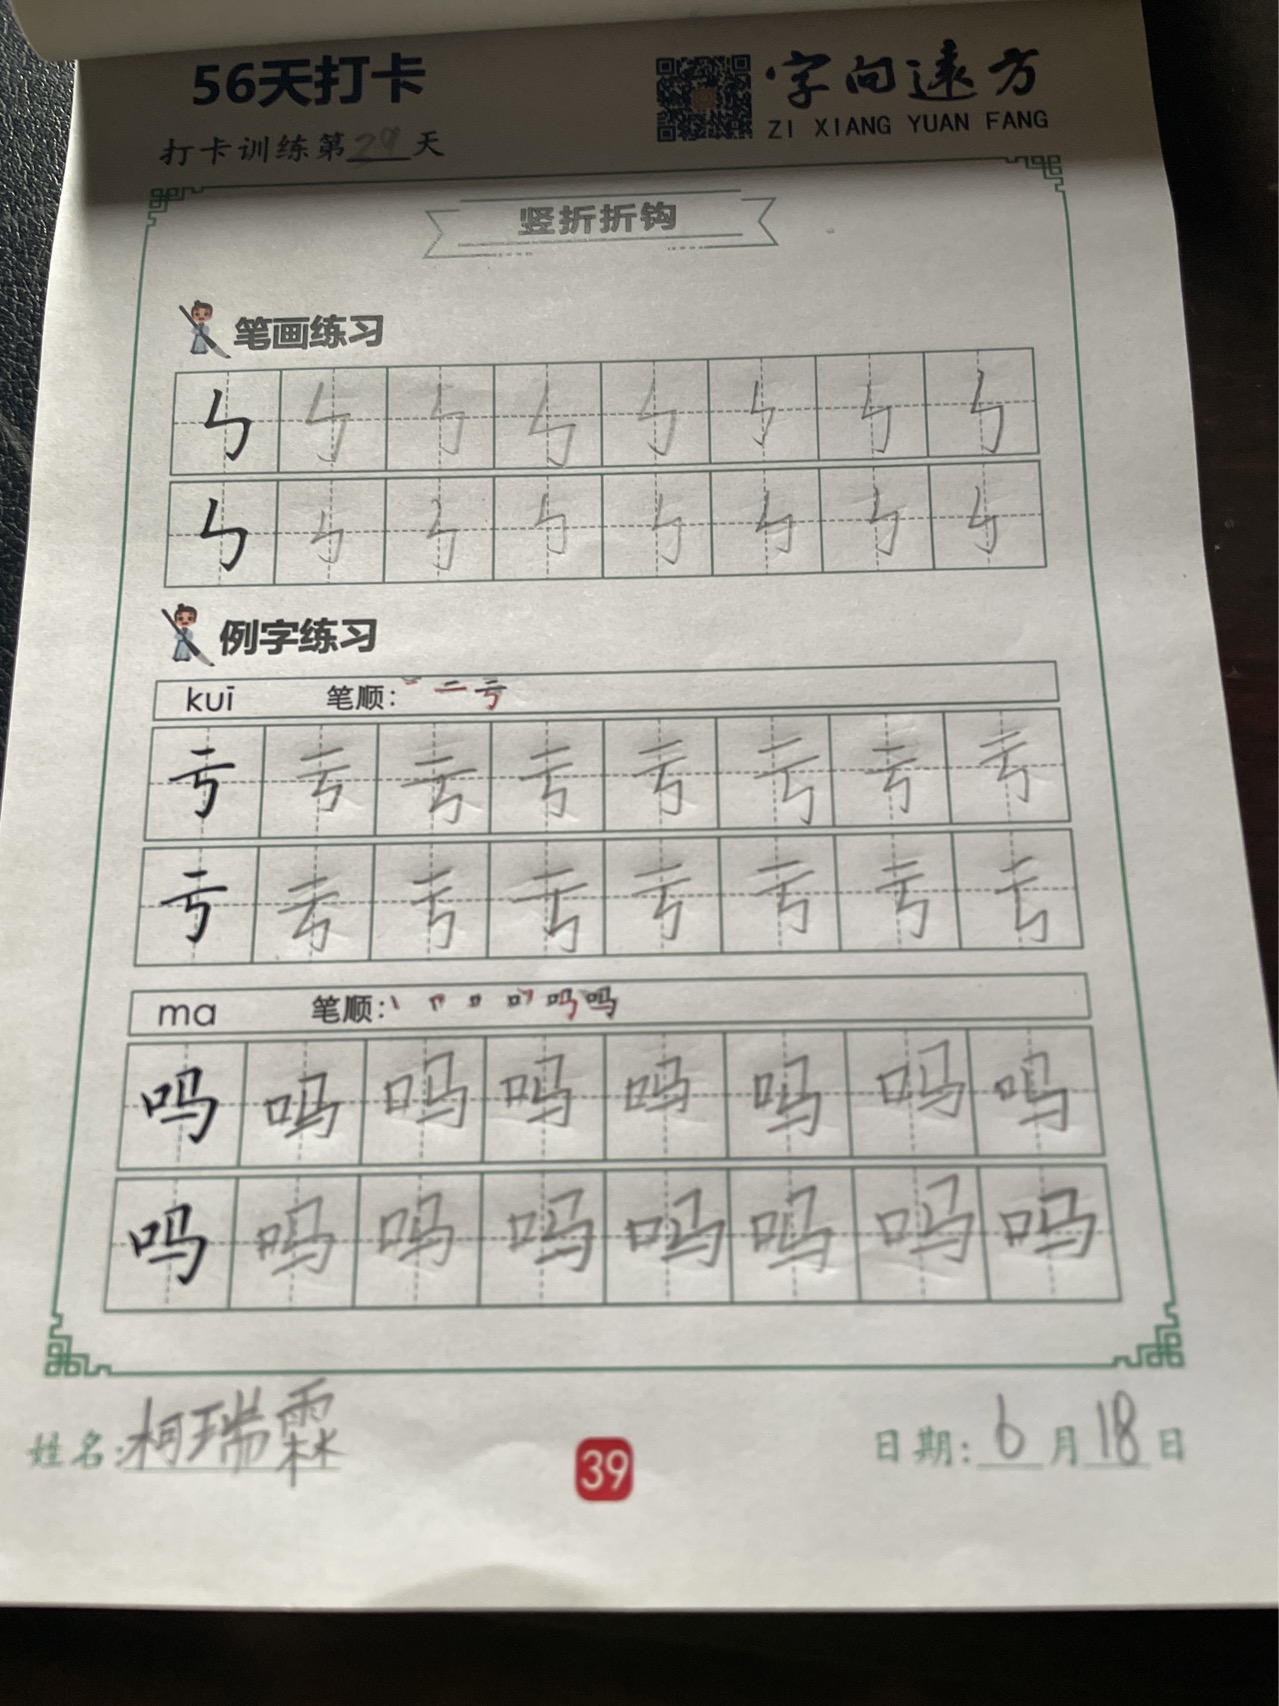 56天打卡
字向远方
ZI XIANG YUAN FANG
打卡训练第29天
竖折折钩
笔画练习
ㄣ ㄣ ㄣ ㄣ ㄣ ㄣ ㄣ ㄣ
ㄣ ㄣ ㄣ ㄣ ㄣ ㄣ ㄣ ㄣ
例字练习
kuī 笔顺: 一 二 亏
亏 亏 亏 亏 亏 亏 亏 亏
亏 亏 亏 亏 亏 亏 亏 亏
ma 笔顺: 吗
吗 吗 吗 吗 吗 吗 吗 吗
吗 吗 吗 吗 吗 吗 吗 吗
姓名:柯瑞霖
39
日期:6月18日